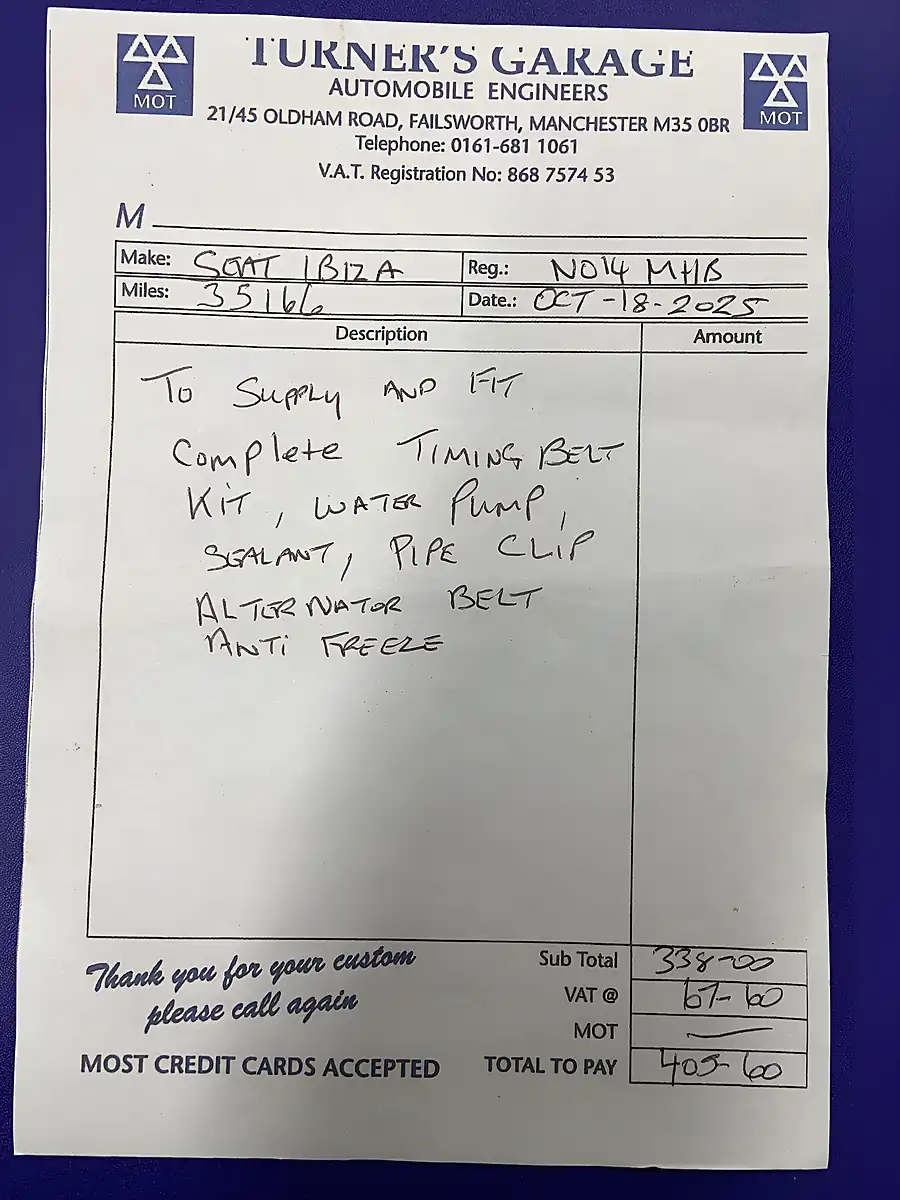 TURNER'S GARAGE
MOT
MOT
AUTOMOBILE ENGINEERS
21/45 OLDHAM ROAD, FAILSWORTH, MANCHESTER M35 0BR
Telephone: 0161-681 1061
V.A.T. Registration No: 868 7574 53
M
Make: SEAT IBIZA Reg.: NO14 MHB
Miles: 35166 Date.: OCT-18-2025
Description Amount
TO SUPPLY AND FIT
COMPLETE TIMING BELT
KIT, WATER PUMP,
SEALANT, PIPE CLIP
ALTERNATOR BELT
ANTI FREEZE
Thank you for your custom
please call again
MOST CREDIT CARDS ACCEPTED
Sub Total 338-00
VAT @ 67-60
MOT —
TOTAL TO PAY 405-60